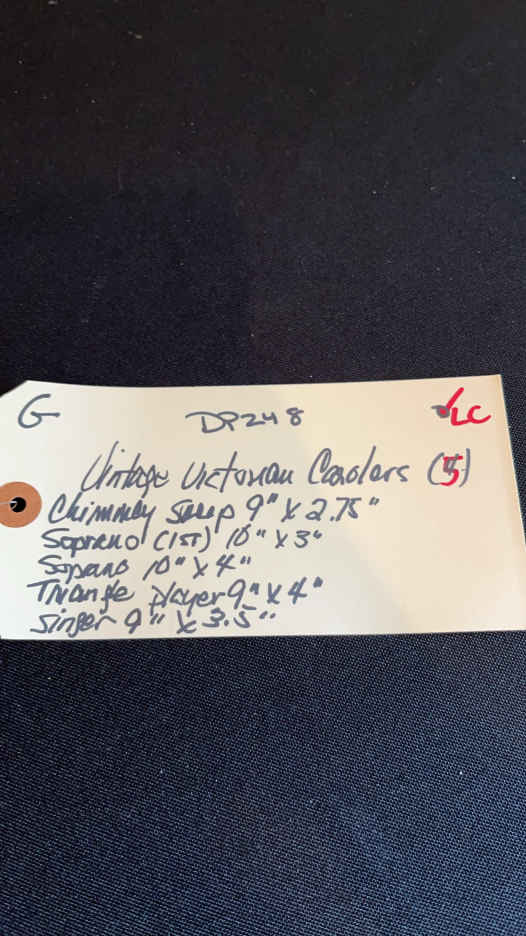 G DP248 LC
Vintage Victorian Carolers (5)
Chimney Sweep 9" X 2.75"
Soprano (1ST) 10" X 3"
Soprano 10" X 4"
Triangle Player 9" X 4"
Singer 9" X 3.5"